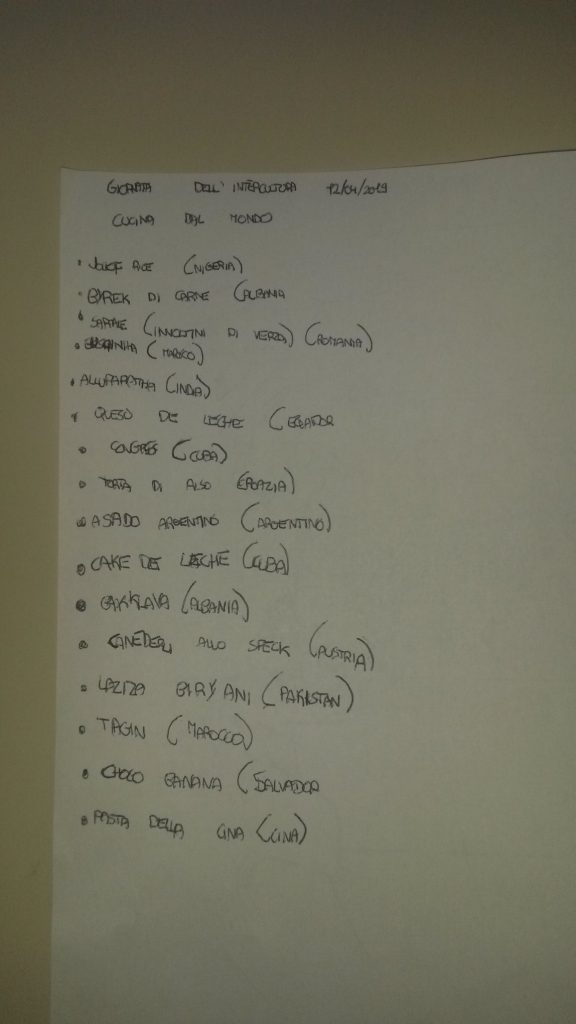 GIORNATA DELL' INTERCULTURA 12/04/2019
CUCINA DAL MONDO
• JOLLOF RICE (NIGERIA)
• BYREK DI CARNE (ALBANIA
• SARMALE (INVOLTINI DI VERZA) (ROMANIA)
• (MAROCCO)
• ALLUPARATHA (INDIA)
• QUESO DE LECHE (ECUADOR
• CONGRIS (CUBA)
• TORTA DI (CROAZIA)
• ASADO ARGENTINO (ARGENTINO)
• CAKE DE LECHE (CUBA)
• BAKKLAVA (ALBANIA)
• CANEDERLI ALLO SPECK (AUSTRIA)
• LAZIZA BIRYANI (PAKISTAN)
• TAGIN (MAROCCO)
• CHOCO BANANA (SALVADOR
• PASTA DELLA CINA (CINA)